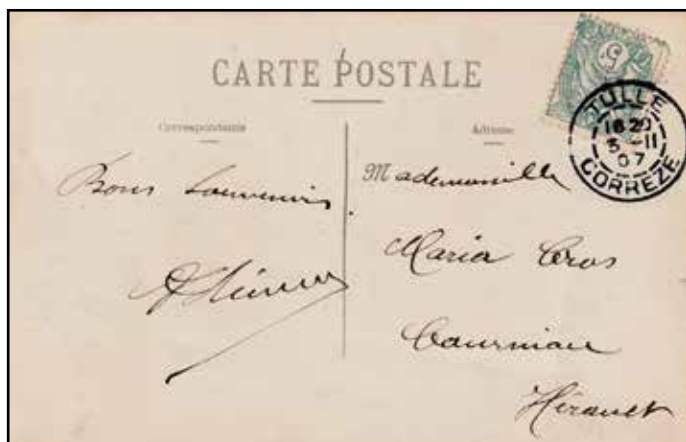 CARTE POSTALE
Correspondance
Adresse
Bons Souvenirs.
Mademoiselle
Maria Cros
Courniou
Hérault
5
TULLE
16 20
5 - 11
07
CORREZE